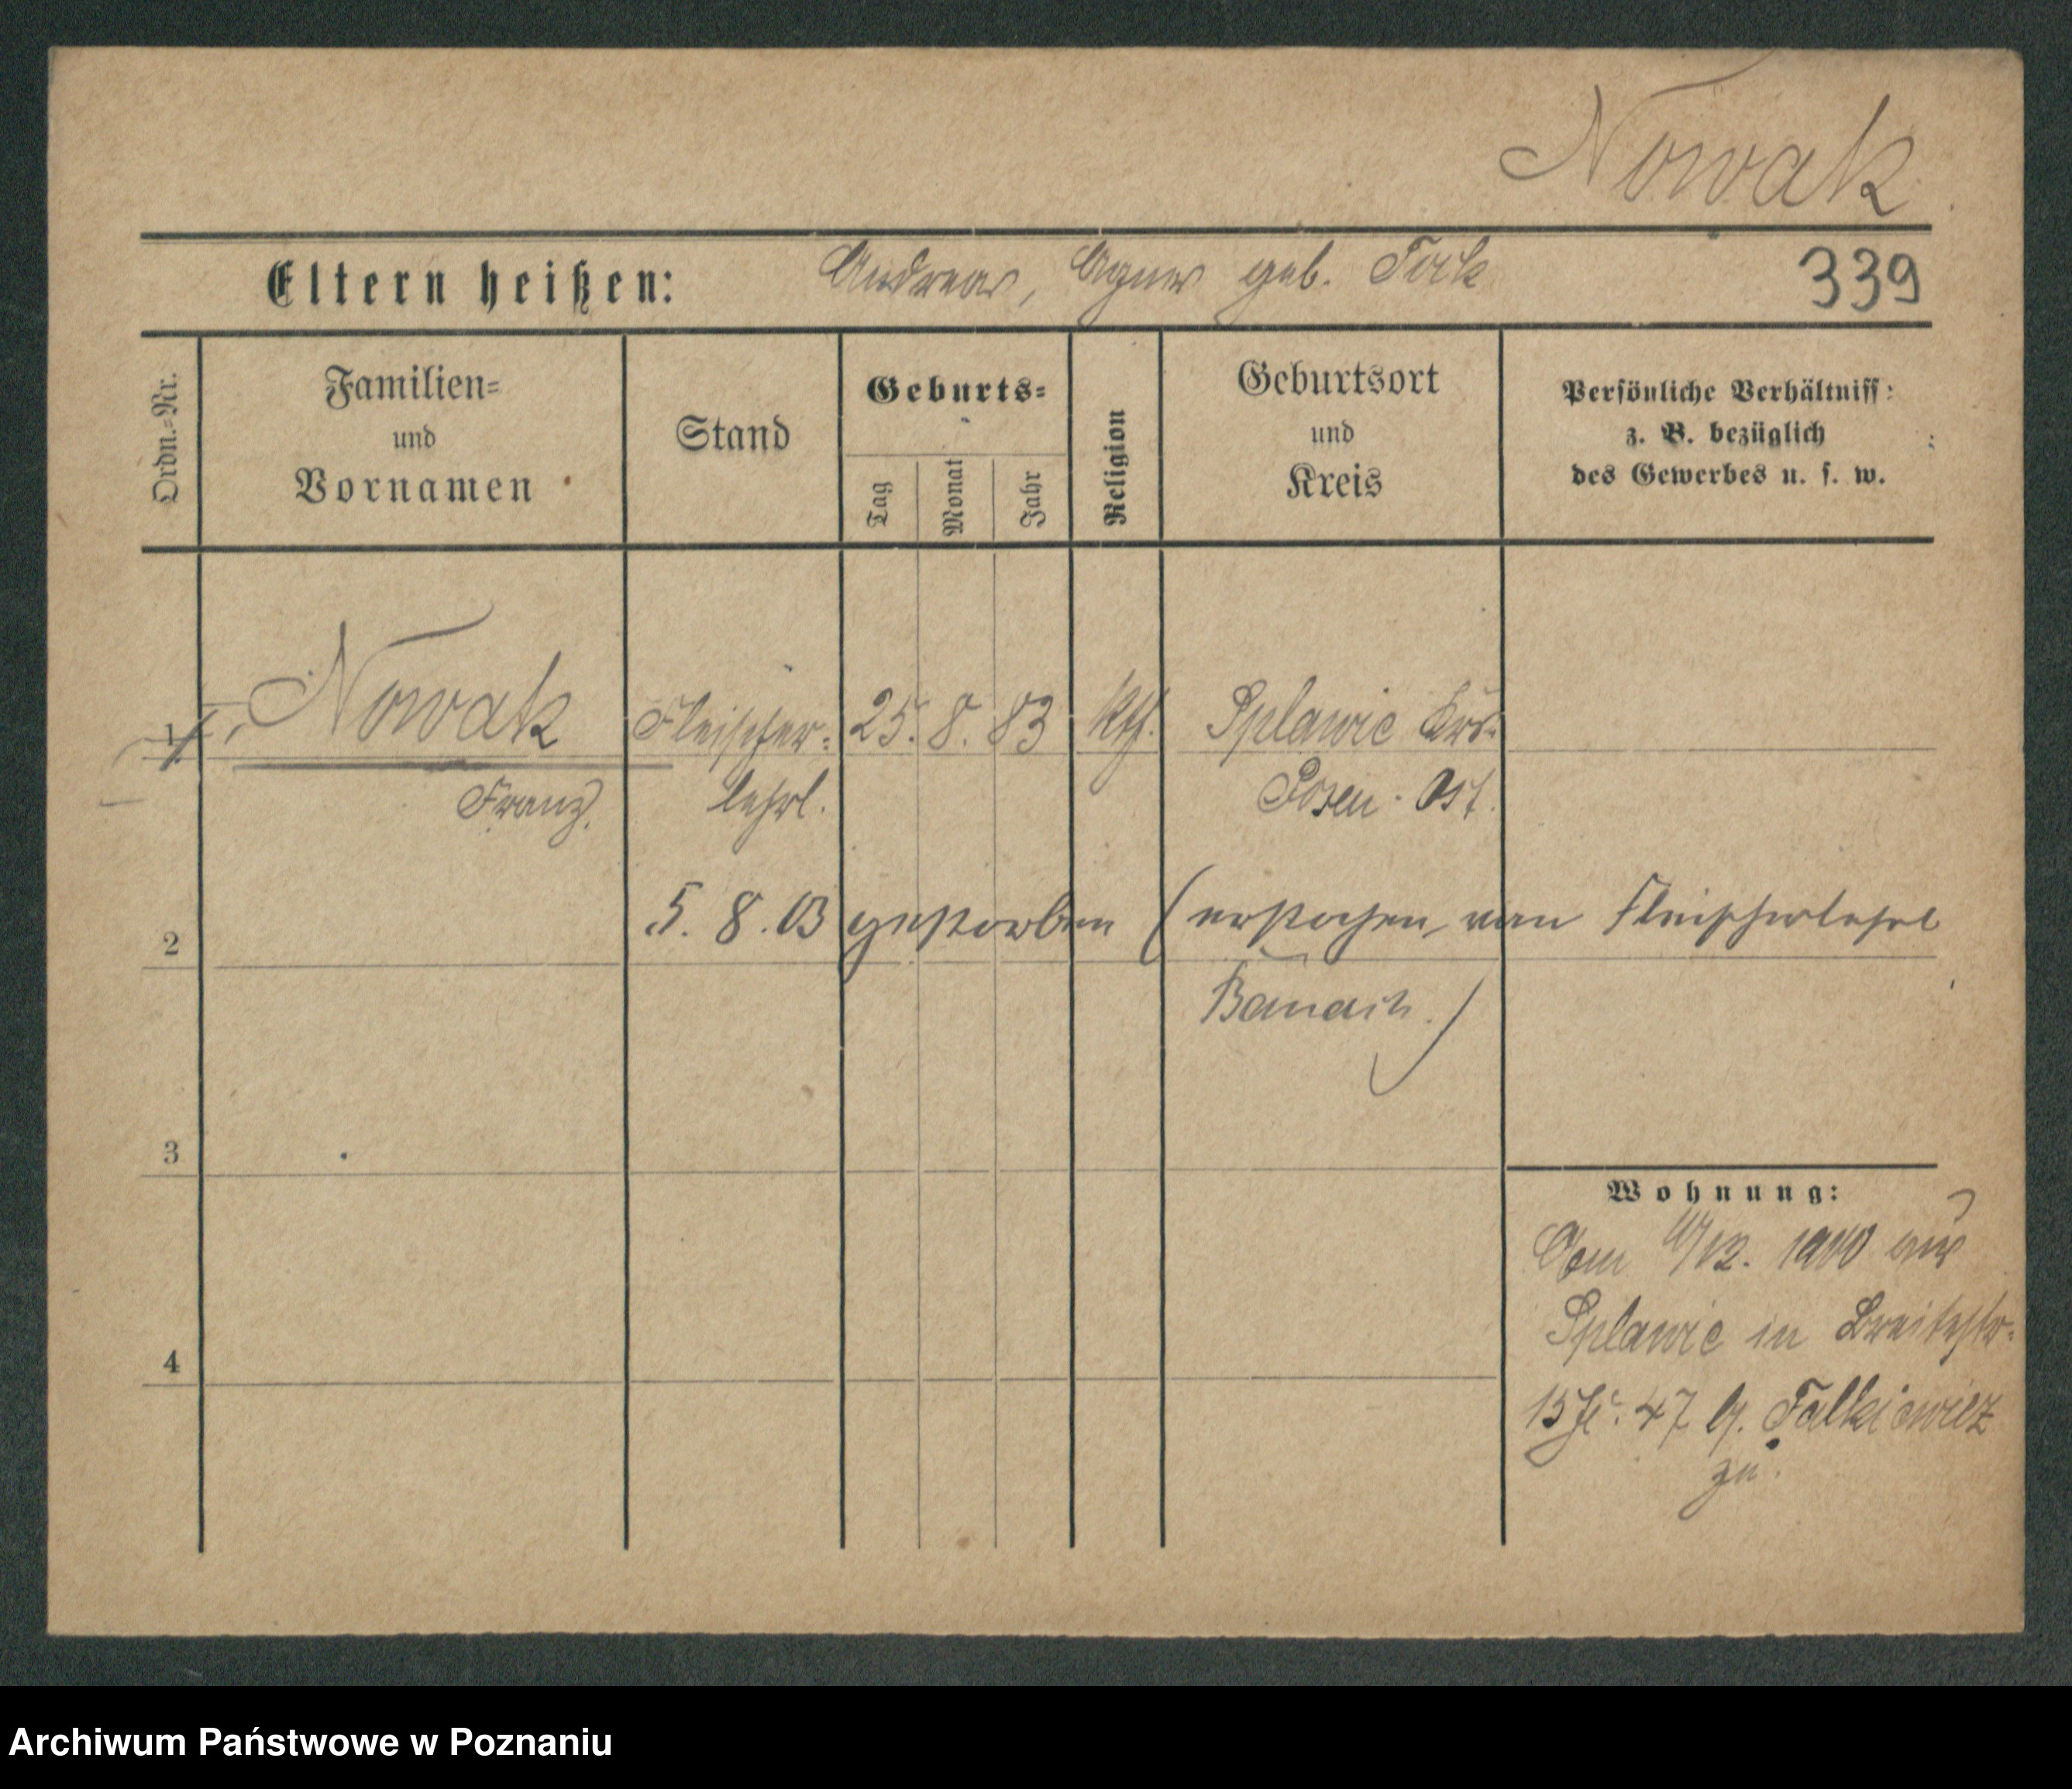 Nowak
Eltern heißen: Andreas, Agnes geb. Tock
339
Ordn.=Nr.
Familien=
und
Vornamen
Stand
Geburts=
Tag
Monat
Jahr
Religion
Geburtsort
und
Kreis
Persönliche Verhältniss:
z. B. bezüglich
des Gewerbes u. s. w.
1 Nowak Fleischer= 25. 8. 83 kth. Splawie Krs.
Franz. lehrl. Posen-Ost.
2 5. 8. 03 gestorben (erstochen von Fleischerlehrl
Banach.)
3
Wohnung:
Vom 12. 1900 aus
Splawie in Breitestr.
4
15 47 b. Falkiewicz
zu.
Archiwum Państwowe w Poznaniu